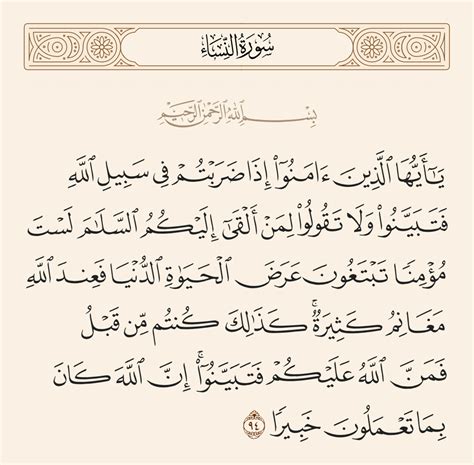 سُورَةُ النِّسَاءِ
بِسْمِ اللَّهِ الرَّحْمَٰنِ الرَّحِيمِ
يَٰٓأَيُّهَا ٱلَّذِينَ ءَامَنُوٓا۟ إِذَا ضَرَبْتُمْ فِى سَبِيلِ ٱللَّهِ
فَتَبَيَّنُوا۟ وَلَا تَقُولُوا۟ لِمَنْ أَلْقَىٰٓ إِلَيْكُمُ ٱلسَّلَٰمَ لَسْتَ
مُؤْمِنًا تَبْتَغُونَ عَرَضَ ٱلْحَيَوٰةِ ٱلدُّنْيَا فَعِندَ ٱللَّهِ
مَغَانِمُ كَثِيرَةٌ ۚ كَذَٰلِكَ كُنتُم مِّن قَبْلُ
فَمَنَّ ٱللَّهُ عَلَيْكُمْ فَتَبَيَّنُوٓا۟ ۚ إِنَّ ٱللَّهَ كَانَ
بِمَا تَعْمَلُونَ خَبِيرًا ٩٤